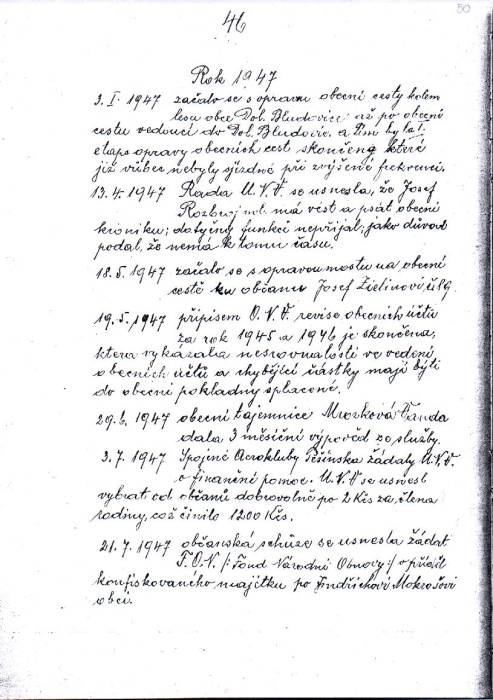 50
46
Rok 1947
3. I. 1947 začalo se s opravou obecní cesty kolem
lesu obce Dol. Bludovic až po obecní
cestu vedoucí do Dol. Bludovic, a tím byla I.
etapa opravy obecních cest skončena, které
již vůbec nebyly sjízdné při zvýšené frekvenci.
13. 4. 1947 Rada M.N.V. se usnesla, že Josef
ml. má vést a psát obecní
kroniku; dotyčný funkci nepřijal; jako důvod
podal, že nemá k tomu času.
18. 5. 1947 začalo se s opravou mostu na obecní
cestě ku občanu Josef Zielinovi, č. 89.
19. 5. 1947 přípisem O.N.V. revise obecních účtů
za rok 1945 a 1946 je skončena,
která vykázala nesrovnalosti ve vedení
obecních účtů a chybějící částky mají býti
do obecní pokladny splacené.
29. 6. 1947 obecní tajemnice Mrozková Vanda
dala 3 měsíční výpověd ze služby.
3. 7. 1947 Spojené Aerokluby Těšínska žádaly M.N.V.
o finanční pomoc. M.N.V. se usnesl
vybrat od občanů dobrovolně po 2 Kčs za člena
rodiny, což činilo 1200 Kčs.
21. 7. 1947 občanská schůze se usnesla žádat
F.O.N. /: Fond Národní Obnovy :/ o příděl
konfiskovaného majetku po Jindřichovi Mokrošovi
obci.